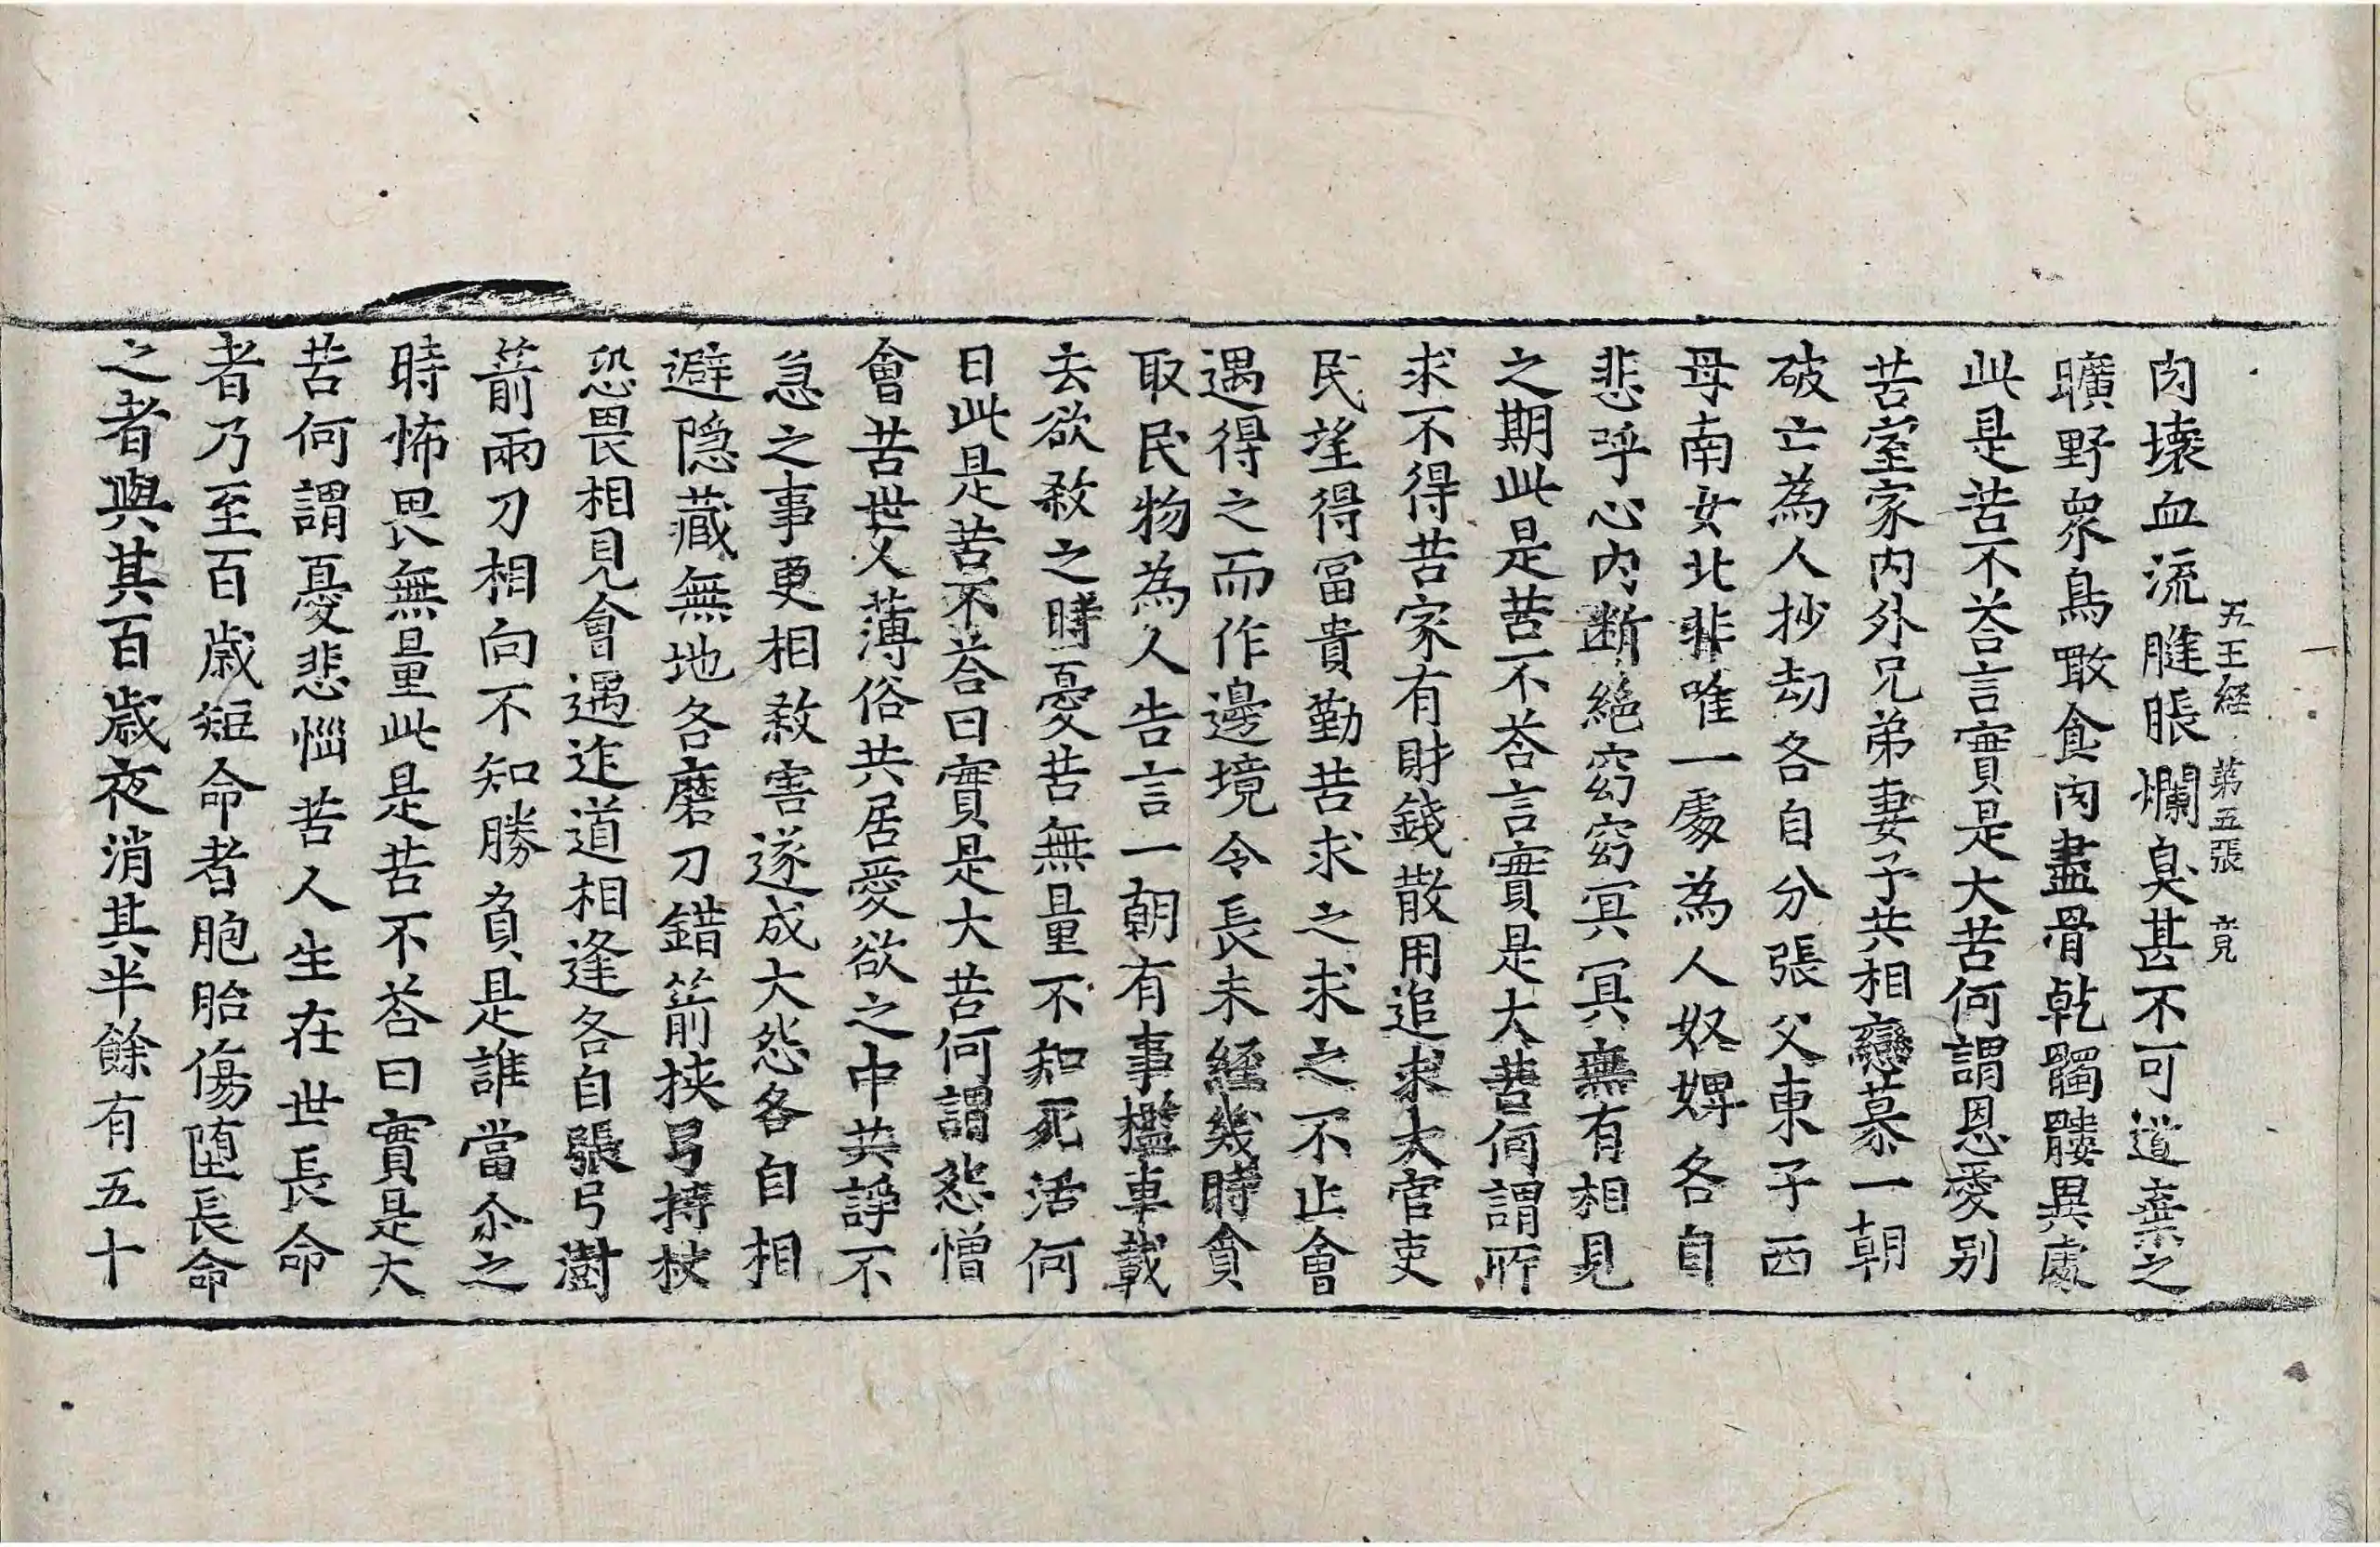 五王経 第五張 竟
肉壊血流膖脹爛臭甚不可道棄之
曠野衆鳥噉食肉盡骨乾髑髏異處
此是苦不荅言實是大苦何謂恩愛别
苦室家内外兄弟妻子共相戀慕一朝
破亡為人抄劫各自分張父東子西
母南女北非唯一處為人奴婢各自
悲呼心内断絶窈窈冥冥無有相見
之期此是苦不荅言實是大苦何謂所
求不得苦家有財錢散用追求大官吏
民望得冨貴勤苦求之求之不止會
遇得之而作邊境令長未經幾時貪
取民物為人告言一朝有事檻車載
去欲煞之時憂苦無量不知死活何
日此是苦不荅曰實是大苦何謂怨憎
會苦世人薄俗共居愛欲之中共諍不
急之事更相煞害遂成大怨各自相
避隠藏無地各磨刀錯箭挟弓持杖
恐畏相見會遇迮道相逢各自張弓澍
箭兩刀相向不知勝負是誰當尒之
時怖畏無量此是苦不荅曰實是大
苦何謂憂悲惱苦人生在世長命
者乃至百歳短命者胞胎傷堕長命
之者與其百歳夜消其半餘有五十